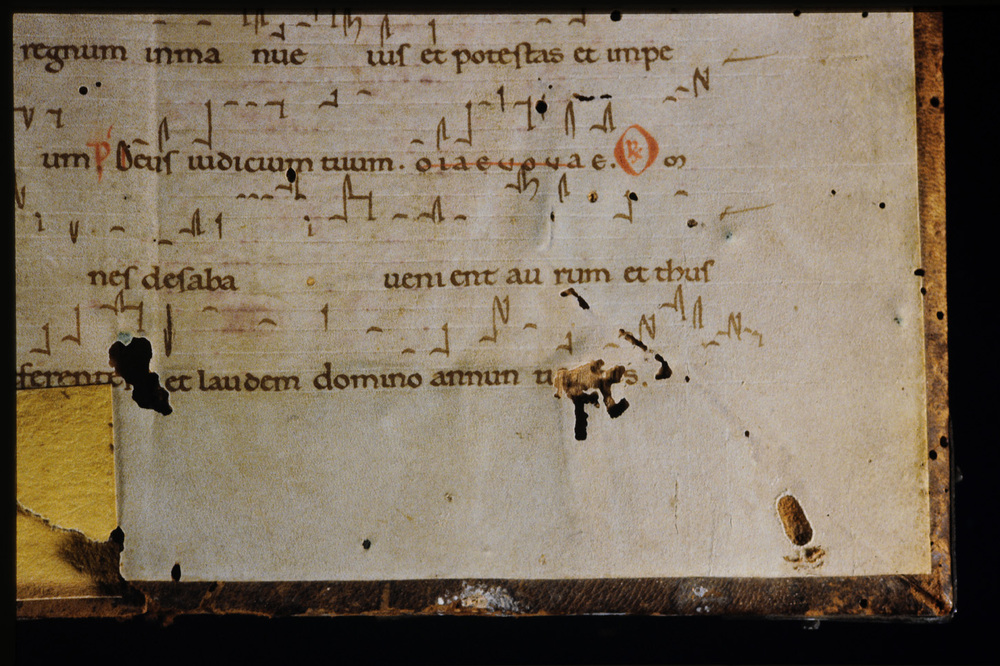 regnum in ma nu e ius et potestas et impe
um P Deus iudicium tuum. o i a e u o u a e. R Om
nes de saba uenient aurum et thus
ferente et laudem domino annun